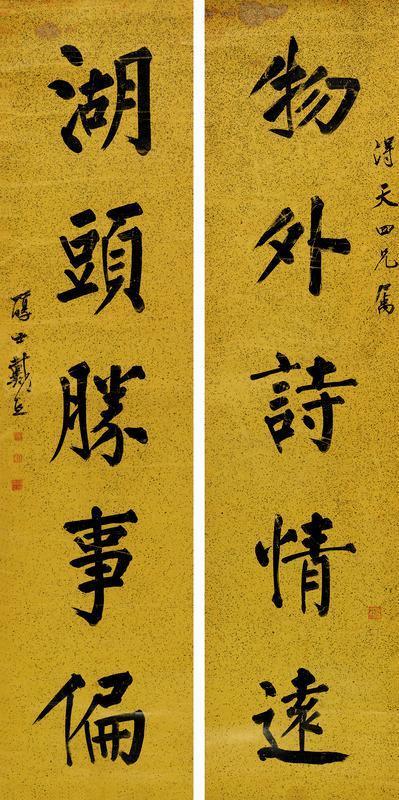 得天四兄属
物外詩情遠
湖頭勝事偏
醇士戴熙